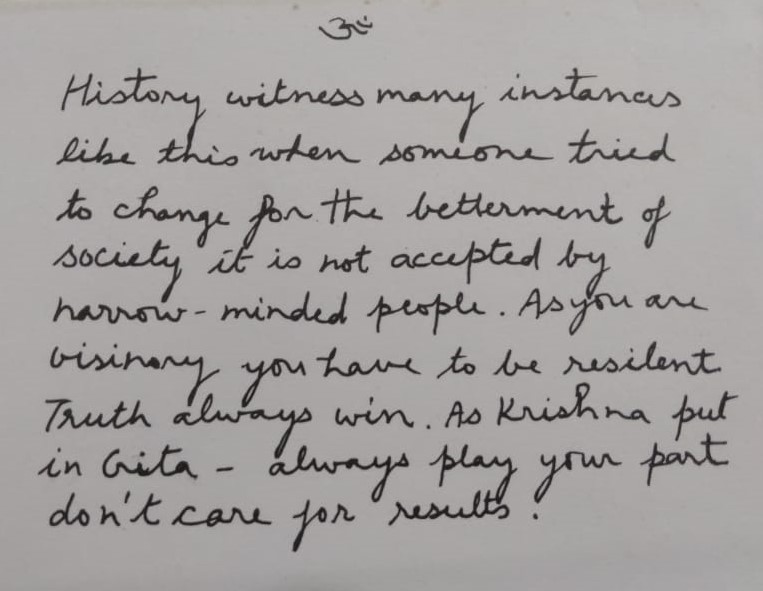 ॐ
History witness many instances
like this when someone tried
to change for the betterment of
society it is not accepted by
narrow-minded people. As you are
visinary you have to be resilent
Truth always win. As Krishna put
in Gita - always play your part
don't care for results.